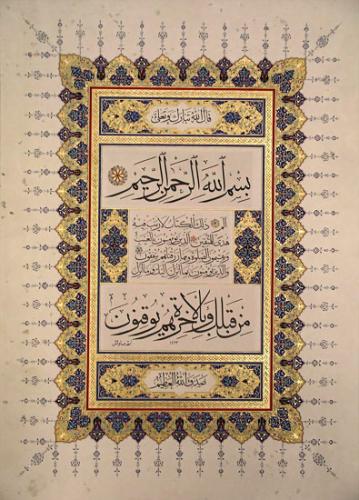 قال الله تبارك وتعالى
بسم الله الرحمن الرحيم
الم ذلك الكتاب لا ريب فيه
هدى للمتقين الذين يؤمنون بالغيب
ويقيمون الصلوة ومما رزقناهم ينفقون
والذين يؤمنون بما انزل اليك وما انزل
من قبلك وبالاخرة هم يوقنون
صدق الله العظيم